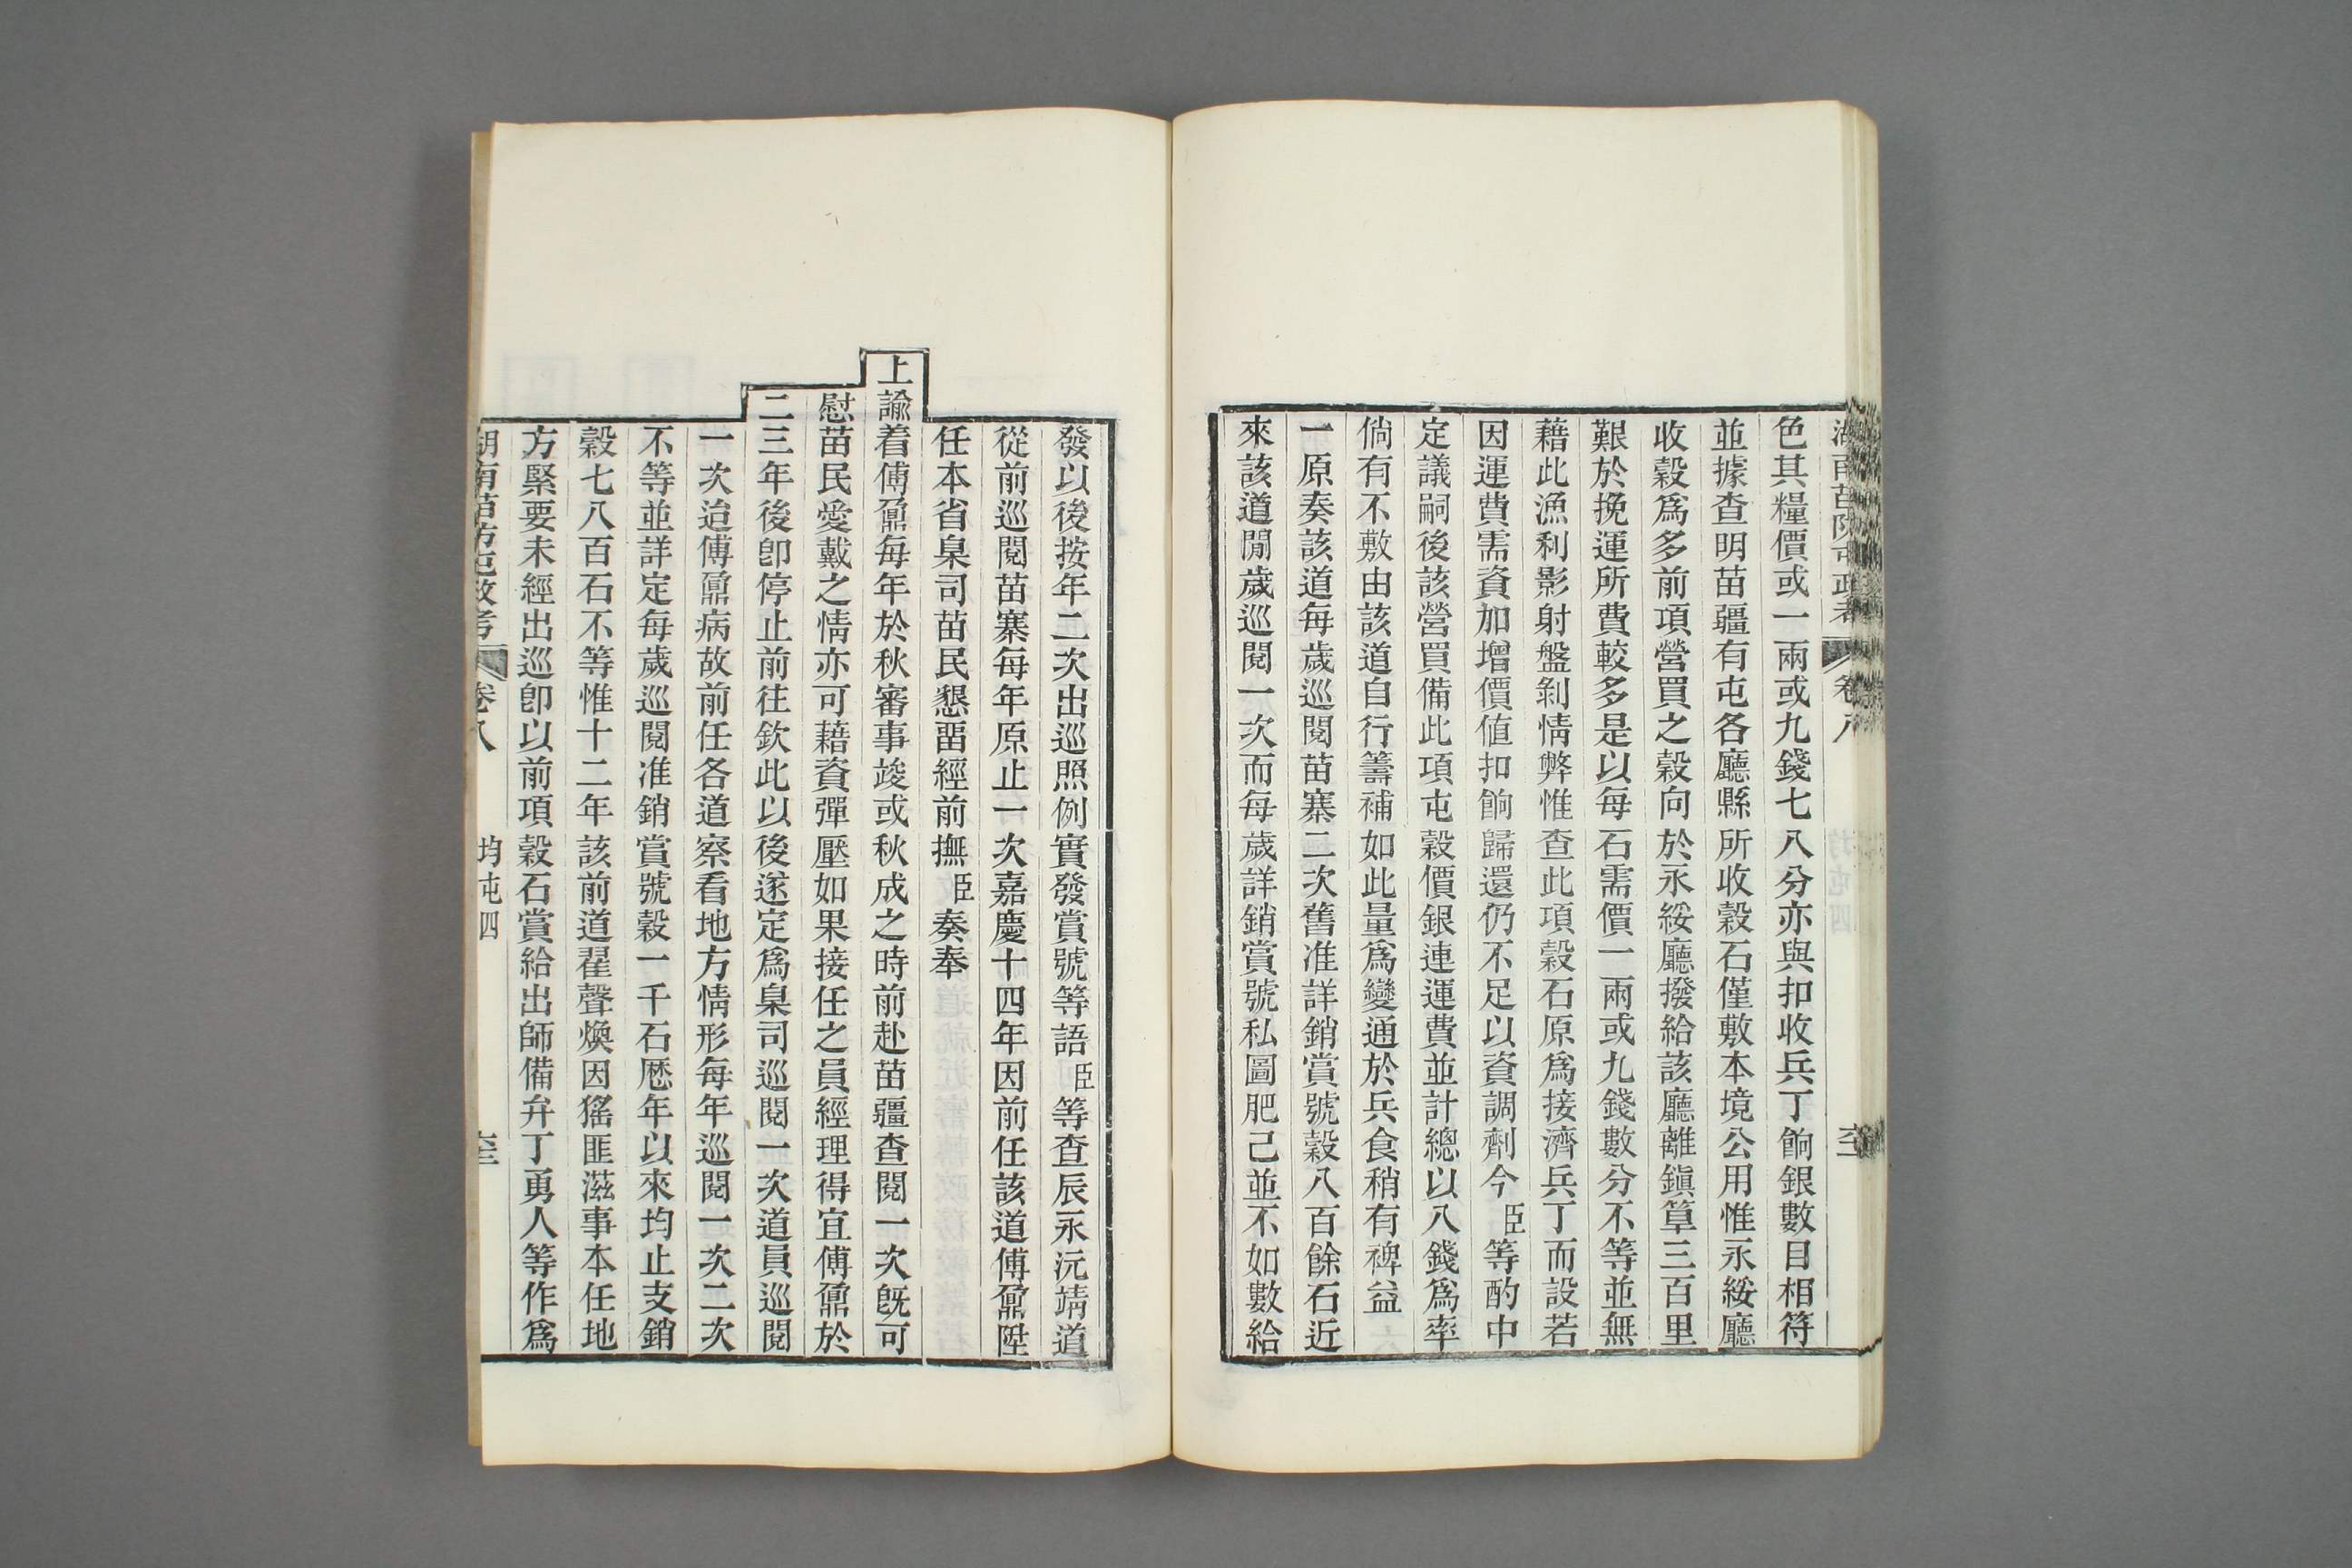 色其糧價或一兩或九錢七八分亦與扣收兵丁餉銀數目相符
並據查明苗疆有屯各廳縣所收穀石僅敷本境公用惟永綏廳
收穀爲多前項營買之穀向於永綏廳撥給該廳離鎭筸三百里
艱於挽運所費較多是以每石需價一兩或九錢數分不等並無
藉此漁利影射盤剝情弊惟查此項穀石原爲接濟兵丁而設若
因運費需資加增價値扣餉歸還仍不足以資調劑今臣等酌中
定議嗣後該營買備此項屯穀價銀連運費並計總以八錢爲率
倘有不敷由該道自行籌補如此量爲變通於兵食稍有裨益
一原奏該道每歲巡閱苗寨二次舊准詳銷賞號穀八百餘石近
來該道閒歲巡閱一次而每歲詳銷賞號私圖肥己並不如數給
發以後按年二次出巡照例實發賞號等語臣等查辰永沅靖道
從前巡閱苗寨每年原止一次嘉慶十四年因前任該道傅鼐陞
任本省臬司苗民懇畱經前撫臣奏奉
上諭着傅鼐每年於秋審事竣或秋成之時前赴苗疆查閱一次旣可
慰苗民愛戴之情亦可藉資彈壓如果接任之員經理得宜傅鼐於
二三年後卽停止前往欽此以後遂定爲臬司巡閱一次道員巡閱
一次迨傅鼐病故前任各道察看地方情形每年巡閱一次二次
不等並詳定每歲巡閱准銷賞號穀一千石歷年以來均止支銷
穀七八百石不等惟十二年該前道翟聲煥因猺匪滋事本任地
方緊要未經出巡卽以前項穀石賞給出師備弁丁勇人等作爲
湖南苗防屯政考 卷八 均屯四